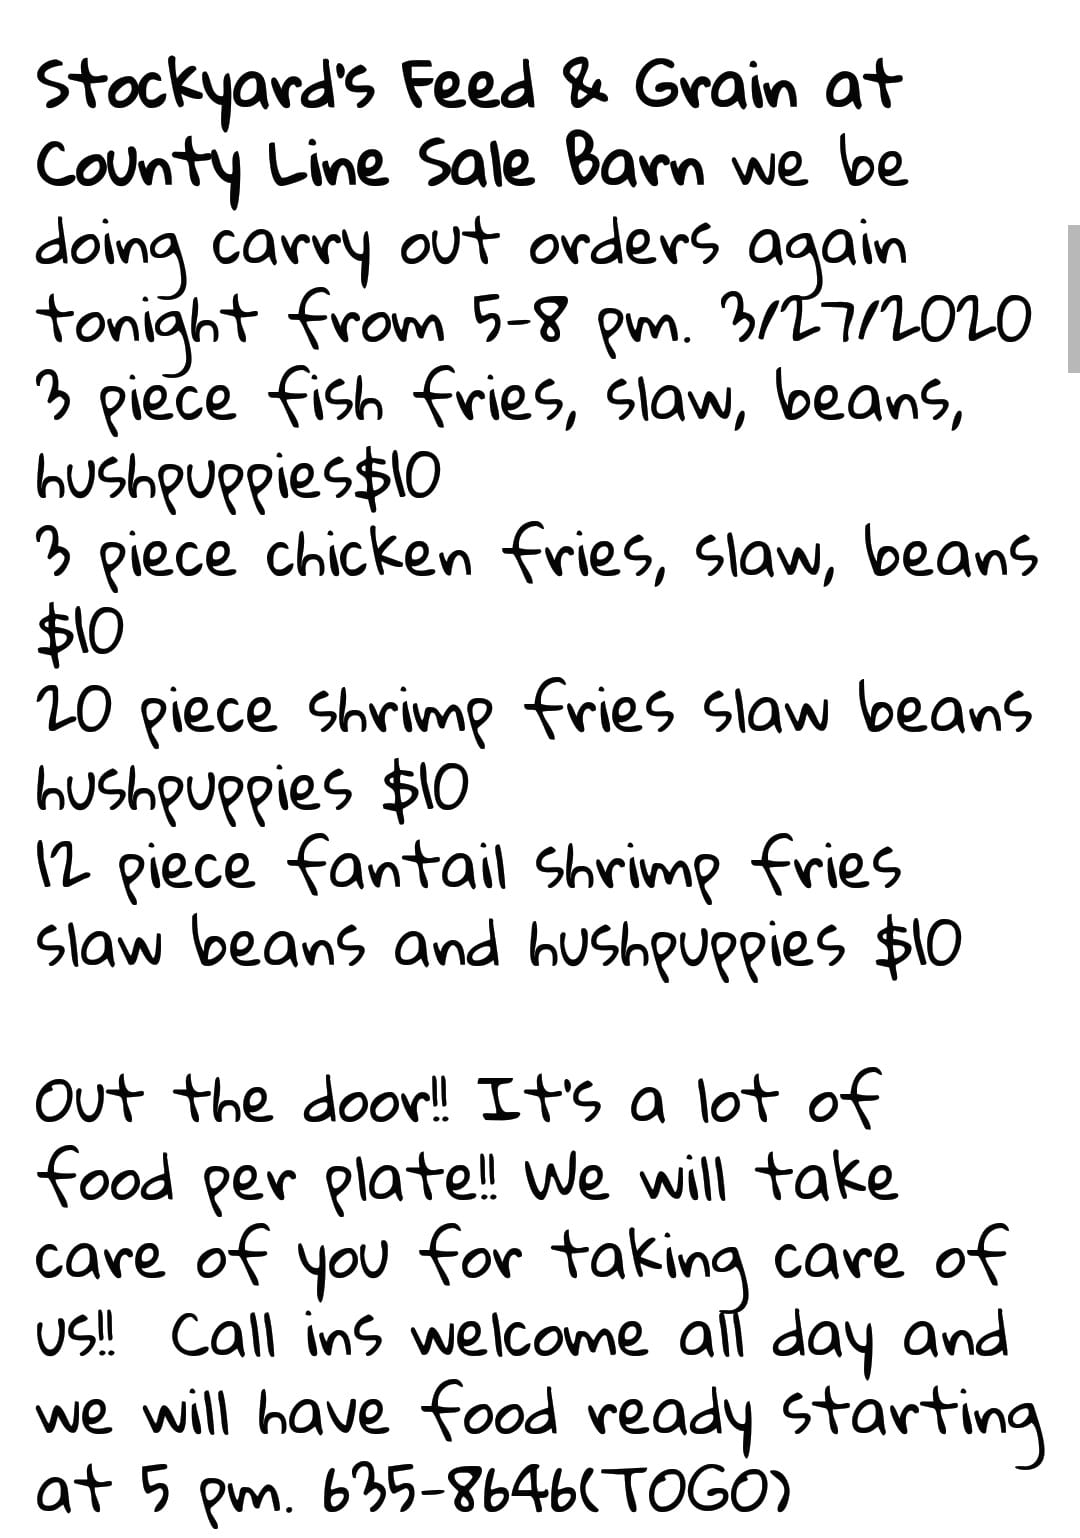 Stockyard's Feed & Grain at
County Line Sale Barn we be
doing carry out orders again
tonight from 5-8 pm. 3/27/2020
3 piece fish fries, slaw, beans,
hushpuppies$10
3 piece chicken fries, slaw, beans
$10
20 piece shrimp fries slaw beans
hushpuppies $10
12 piece fantail shrimp fries
slaw beans and hushpuppies $10
Out the door!! It's a lot of
food per plate!! We will take
care of you for taking care of
us!! Call ins welcome all day and
we will have food ready starting
at 5 pm. 635-8646(TOGO)